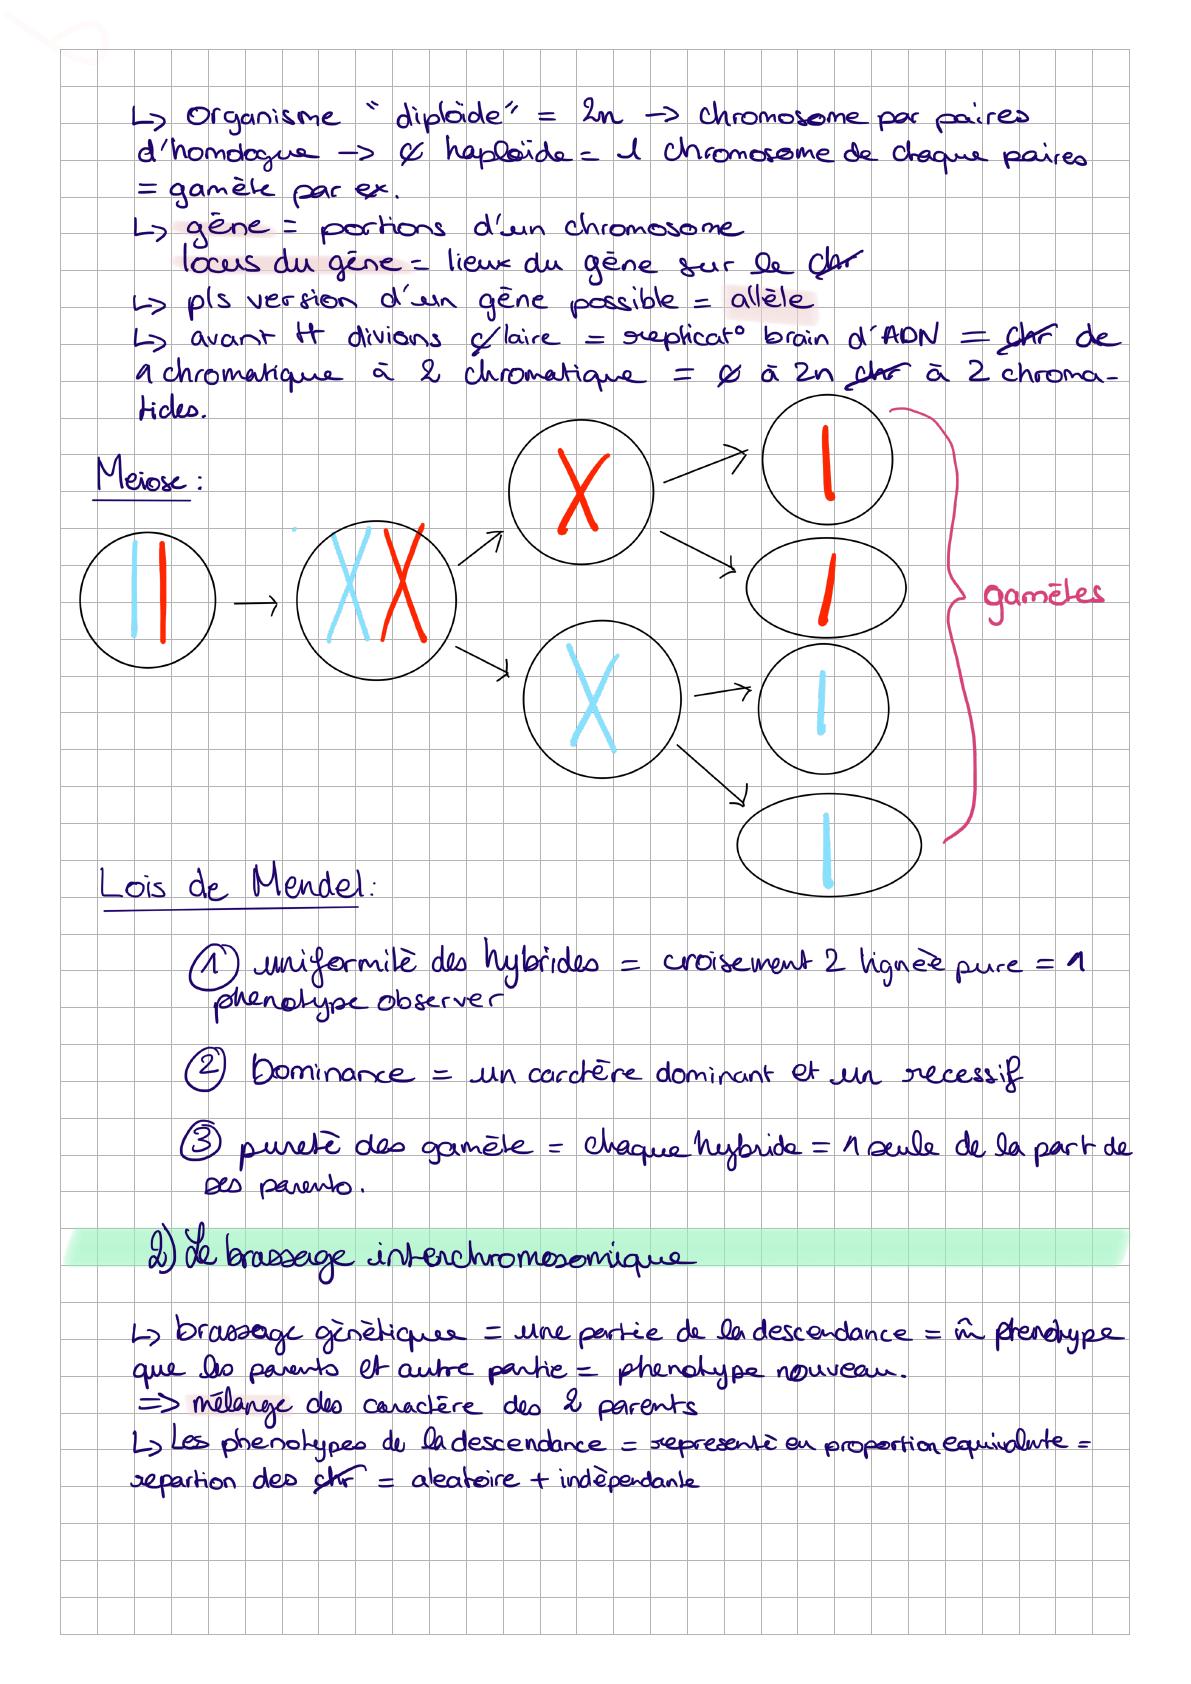 ↳ Organisme "diploïde" = 2n → chromosome par paires
d'homologue → ȼ haploïde = 1 chromosome de chaque paires
= gamète par ex.
↳ gène = portions d'un chromosome
locus du gène = lieux du gène sur le chr
↳ pls version d'un gène possible = allèle
↳ avant tt divions ȼ/laire = replicat° brain d'ADN = chr de
1 chromatique à 2 chromatique = ȼ à 2n chr à 2 chroma-
tides.
Meiose :
gamètes
Lois de Mendel :
① uniformité des hybrides = croisement 2 lignéé pure = 1
phenotype observer
② Dominance = un carctère dominant et un recessif
③ pureté des gamète = chaque hybride = 1 seule de la part de
ses parents.
2) Le brassage interchromosomique
↳ brassage génétiques = une partie de la descendance = m̂ phenotype
que les parents et autre partie = phenotype nouveau.
=> mélange des caractère des 2 parents
↳ Les phenotypes de la descendance = representé en proportion equivalente =
repartion des chr = aleatoire + indépendante